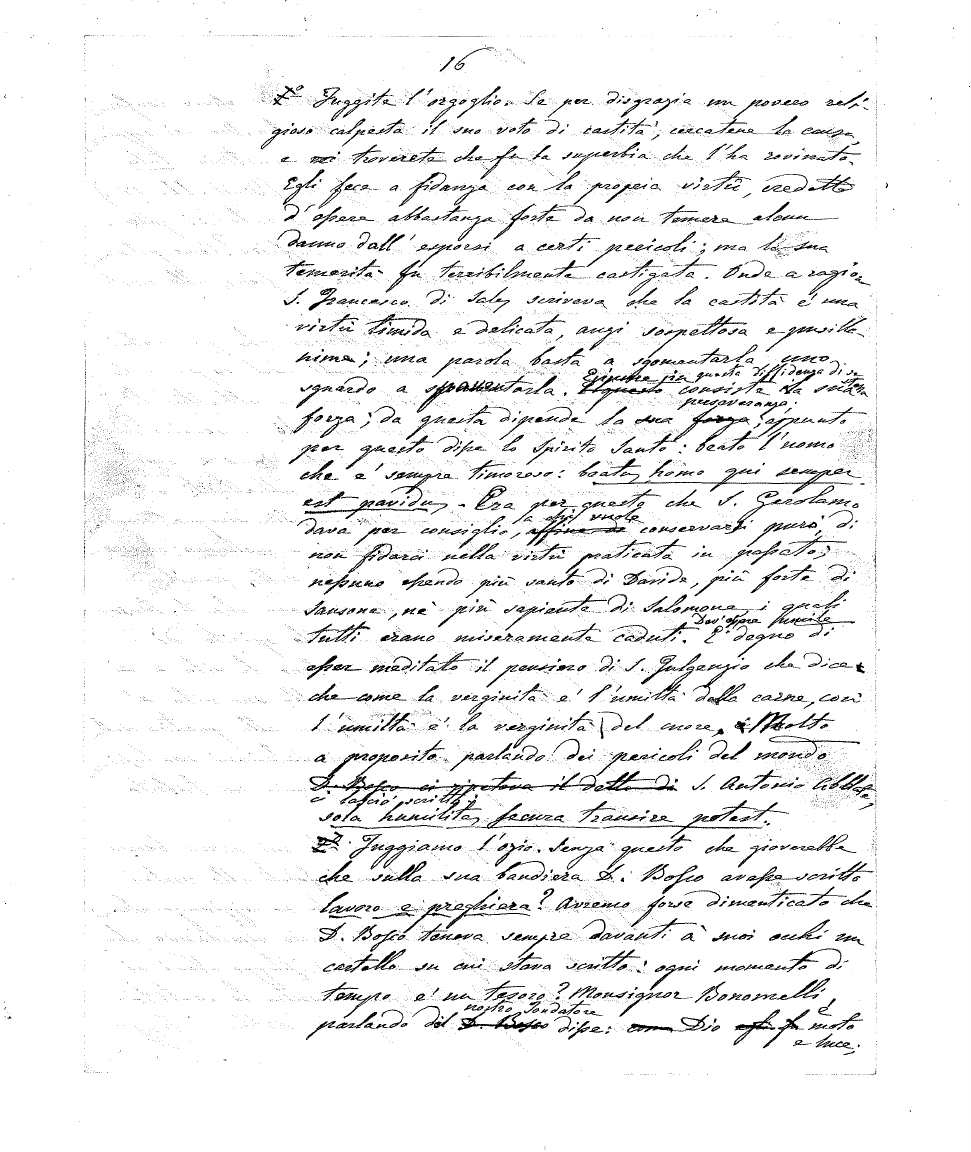 16
1° Fuggite l'orgoglio. Se per disgrazia un povero reli-
gioso calpesta il suo voto di castità, cercatene la causa,
e vi troverete che fu la superbia che l'ha rovinato.
Egli fece a fidanza con la propria virtù, credette
d'essere abbastanza forte da non temere alcun
danno dall'esporsi a certi pericoli; ma la sua
temerità fu terribilmente castigata. Onde a ragion
S. Francesco di Sales scriveva che la castità è una
virtù timida e delicata, anzi sospettosa e pusilla-
nime; una parola basta a sgomentarla, uno
sguardo a spaventarla. Eppure in questa diffidenza di se stessa consiste la sua
forza; da questa dipende la sua forza perseveranza; appunto
per questo disse lo Spirito Santo: beato l'uomo
che è sempre timoroso: beatus homo qui semper
est pavidus. Era per questo che S. Gerolamo
dava per consiglio, affine di a chi vuole conservarsi puro, di
non fidarsi nella virtù praticata in passato;
nessuno essendo più santo di Davide, più forte di
Sansone, nè più sapiente di Salomone, i quali
tutti erano miseramente caduti. Dev'essere umile E' degno di
esser meditato il pensiero di S. Fulgenzio che dice
che come la verginità è l'umiltà della carne, così
l'umiltà è la verginità del cuore. Molto
a proposito parlando dei pericoli del mondo
D. Bosco ci ripeteva il detto di S. Antonio Abbate,
ci lasciò scritto:
sola humilitas secura transire potest.
2° Fuggiamo l'ozio. Senza questo che gioverebbe
che sulla sua bandiera D. Bosco avesse scritto
lavoro e preghiera? Avremo forse dimenticato che
D. Bosco teneva sempre davanti a' suoi occhi un
cartello su cui stava scritto: ogni momento di
tempo è un tesoro? Monsignor Bonomelli,
parlando del D. Bosco nostro Fondatore disse: come Dio egli fu è moto
e luce;